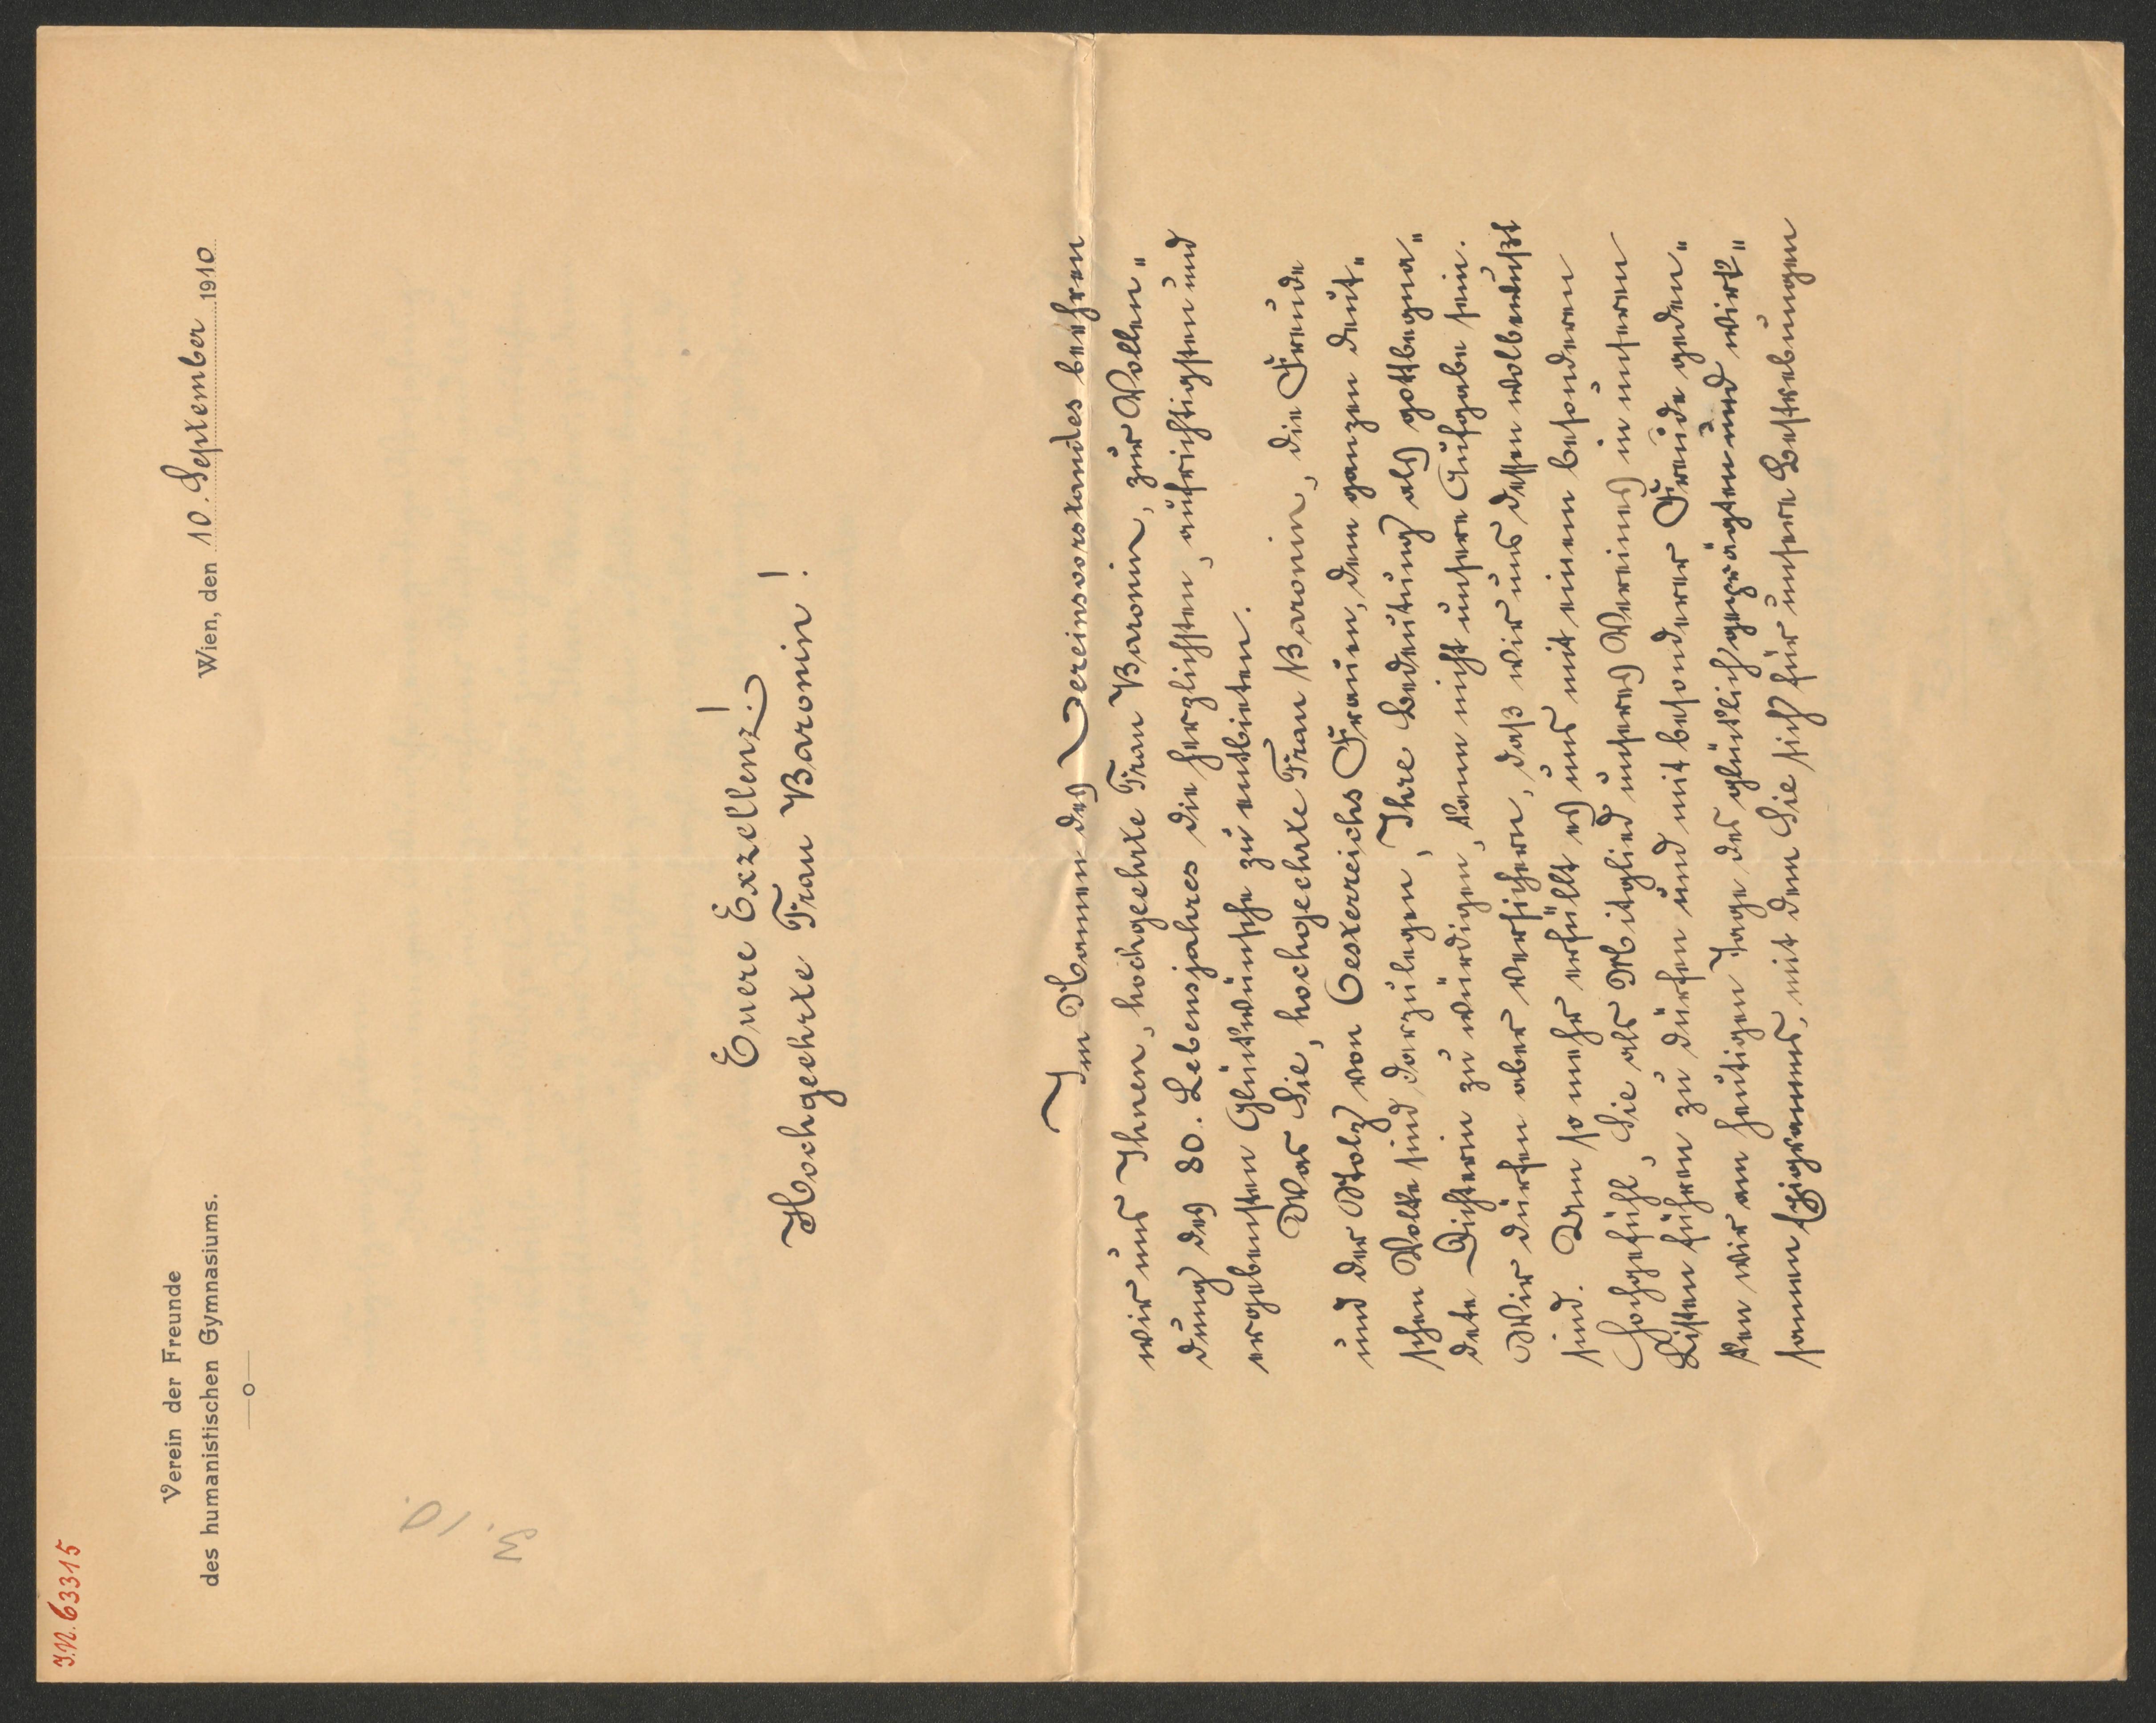 I.N. 63315
Verein der Freunde
des humanistischen Gymnasiums.
Wien, den 10. September 1910
3. 10.
Euere Exzellenz!
Hochgeehrte Frau Baronin!
Im Namen des Vereinsvorstandes beehren
wir uns Ihnen, hochgeehrte Frau Baronin, zur Vollen„
dung des 80. Lebensjahres die herzlichsten, aufrichtigsten und
ergebensten Glückwünsche zu entbieten.
Was Sie, hochgeehrte Frau Baronin, die Freude
und der Stolz von Oesterreichs Frauen, dem ganzen deut„
schen Volke sind, darzulegen, Ihre Bedeutung als gottbegna„
dete Dichterin zu würdigen, kann nicht unsere Aufgabe sein.
Wir dürfen aber versichern, daß wir uns dessen wolbewußt
sind. Um so mehr erfüllt es uns mit einem besonderen
Hochgefühl, Sie als Mitglied unseres Vereines in unseren
Listen führen zu dürfen und mit besonderer Freude geden„
ken wir am heutigen Tage des glücklich geprägten und wirk„
samen Epigramms, mit dem Sie sich für unsere Bestrebungen